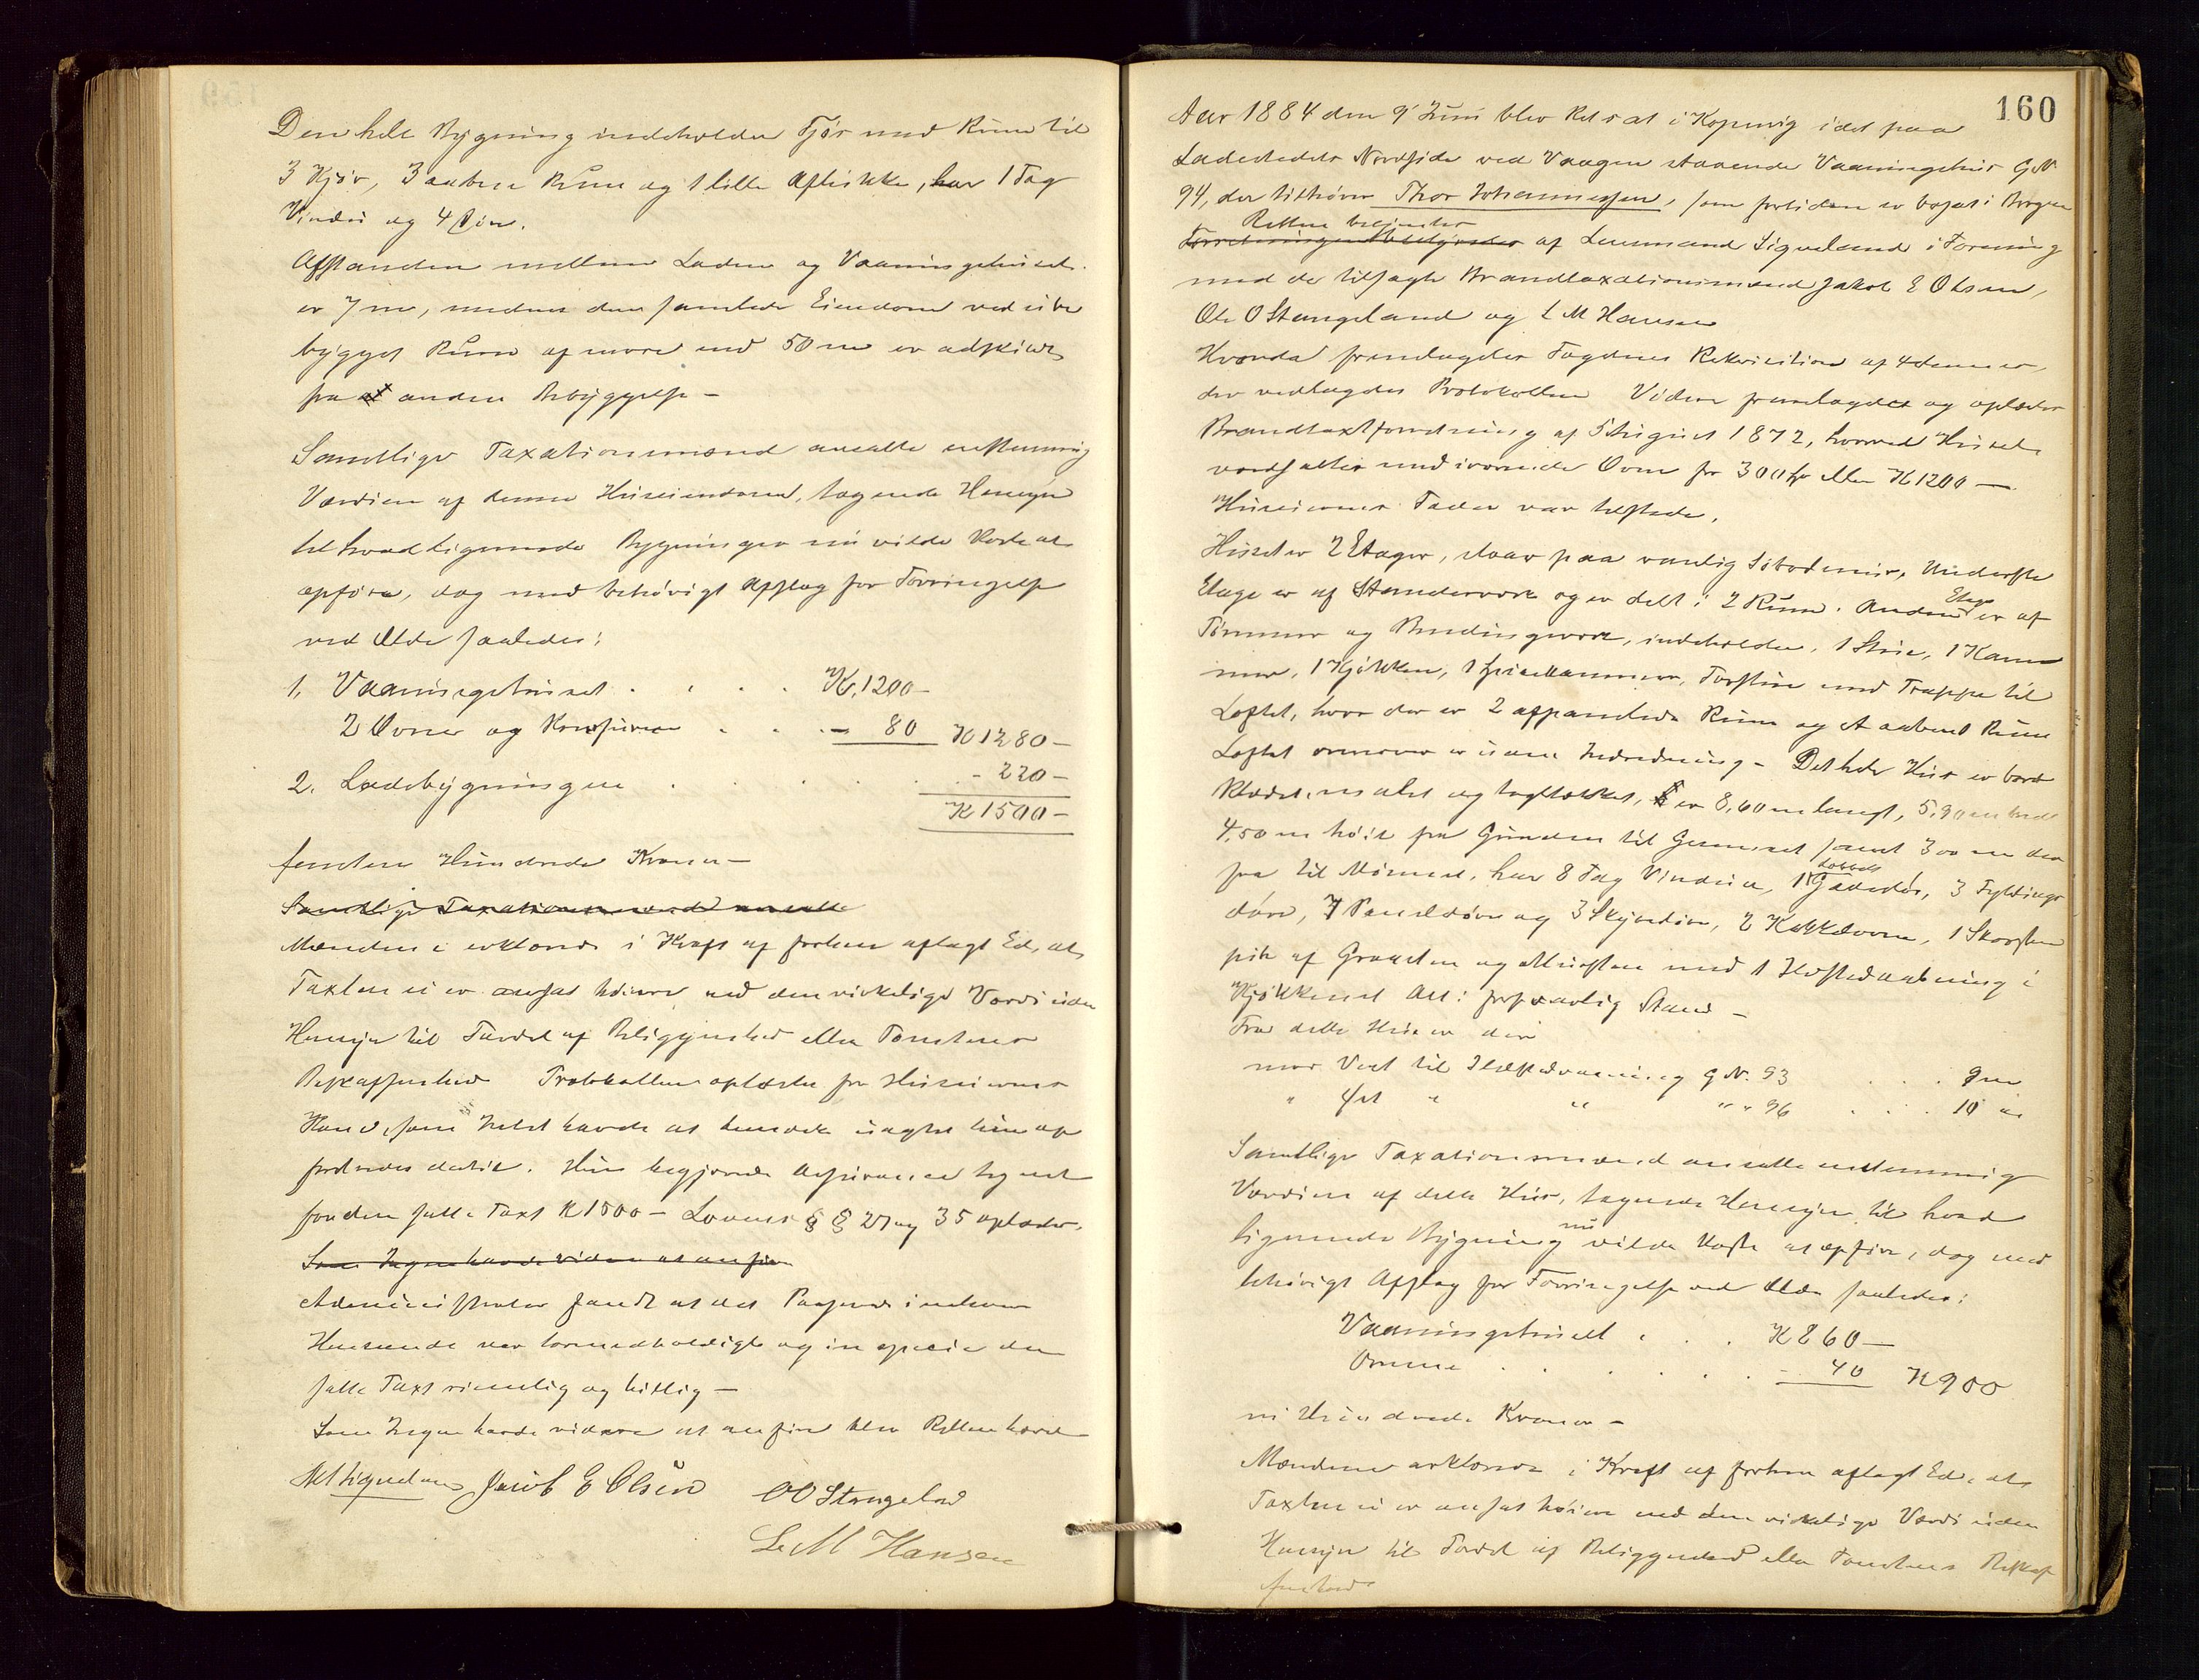 Den hele Bygning indeholder Fjøs med Rum til
3 Kjør, 3 aabne Rum og 1 lille Aflukke, har 1 Fag
Vindu og 4 Døre.
Afstanden mellem Laden og Vaaningshuset
er 7 m, medens den samlede Eiendom ved ube
bygget Rum af mere end 50 m er adskilt
fra at anden Bebyggelse –
Samtlige Taxationsmænd ansatte enstemmig
Værdien af denne Huseiendom, tagende Hensyn
til hvad lignende Bygninger nu vilde koste at
opføre, dog med behøvigt Afslag for Forringelse
ved Ælde saaledes:
1. Vaaningshuset . . . . Kr. 1200 –
2 Ovner og Komfuren . . . – 80 K 1280 –
2. Ladebygningen . . . . . - 220 –
K 1500 –
femten Hundrede Kroner –
Samtlige Taxationsmænd ansatte
Mændene erklærede i Kraft af forhen aflagt Ed, at
Taxten ei er ansat høiere end den virkelige Værdi uden
Hensyn til Fordel af Beliggenhed eller Tomtens
Beskaffenhed Protokollen oplæstes for Huseierens
Kone, som Intet havde at bemærke uagtet hun op
fordredes dertil. Hun begjærede Assurance tegnet
for den satte Taxt K 1500 – Lovens § § 27 og 35 oplæstes.
Som Ingen havde videre at anføre
Administrator fandt at det Passerede i enhver
Henseende var lovmedholdigt og in specie den
satte Taxt rimelig og billig –
Som Ingen havde videre at anføre blev Retten hævet
Sigveland Jacob E Olsen OO Stangeland
L M Hansen
160
Aar 1884 den 9 Juni blev Ret sat i Kopervig i det paa
Ladestedets Nordside ved Vaagen staaende Vaaningshus GN.
94, der tilhører Thor Johannessen, som fortiden er bosat i Bergen
Retten betjentes
Forretningen betjentes af Lensmand Sigveland i Forening
med de tilsagte Brandtaxationsmænd Jakob E Olsen,
Ole O Stangeland og L M Hansen
Hvorda fremlagdes Fogdens Rekvisition af 4 dennes,
der vedlagdes Protokollen Videre fremlagdes og oplæstes
Brandtaxtforretning af 5 August 1872, hvorved Huset
værdsattes med iværende Ovne for 300 Spd eller K 1200 –
Huseierens Fader var tilstede.
Huset er 2 Etager, staar paa vanlig Søbodmur, Underste
Etage er af Stenderværk og er delt i 2 Rum. Anden Etage er af
Tømmer og Bindingsværk, indeholder, 1 Stue, 1 Kam
mer, 1 Kjøkken, 1 Spisekammer, Forstue med Trappe til
Loftet, hvor der er 2 afpanelede Rum og et aabent Rum
Loftet ovenover er uden Indredning – Det hele Hus er bord
klædt, malet og tagtækket, er 8,60 m langt, 5,90 m bredt
4,50 m høit fra Grunden til Gesimset samt 3 00 m der
fra til Mønnet, har 8 Fag Vinduer, 1 dobbelt Gadedør, 3 Fyldings
døre, 7 Paneldøre og 3 Skyvedøre, 2 Kakkelovne, 1 Skorsten
pibe af Graasten og Mursten med 1 Ildstedaabning i
Kjøkkenet Alt i forsvarlig Stand –
Fra dette Hus er der
mod Vest til Ildstedvaaning GN. 93 . . . 9 m
" Øst " " " " 96 . . . 10 m
Samtlige Taxationsmænd ansatte enstemmig
Værdien af dette Hus, tagende Hensyn til hvad
lignende Bygning nu vilde koste at opføre, dog med
behøvigt Afslag for Forringelse ved Ælde saaledes:
Vaaningshuset . . . K 860 –
Ovnene . . . . . - 40 K 900
ni Hundrede Kroner –
Mændene erklærede i Kraft af forhen aflagt Ed, at
Taxten ei er ansat høiere end den virkelige Værdi uden
Hensyn til Fordel af Beliggenhed eller Tomtens Beskaf
fenhed